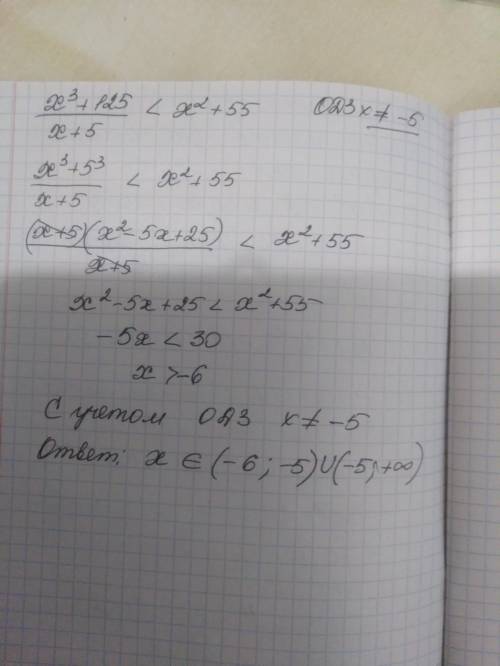 x³+125 / x+5 < x²+55 ОДЗ x ≠ -5
x³+5³ / x+5 < x²+55
(x+5)(x²-5x+25) / x+5 < x²+55
x²-5x+25 < x²+55
-5x < 30
x > -6
С учетом ОДЗ x ≠ -5
Ответ: x ∈ (-6; -5)∪(-5; +∞)